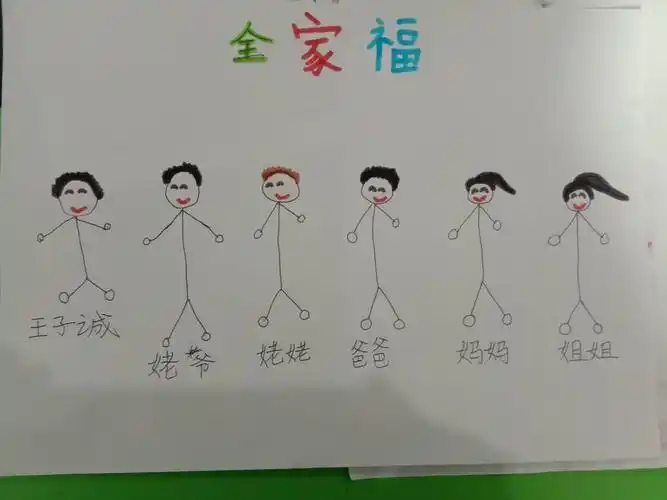 全家福
王子诚
姥爷
姥姥
爸爸
妈妈
姐姐